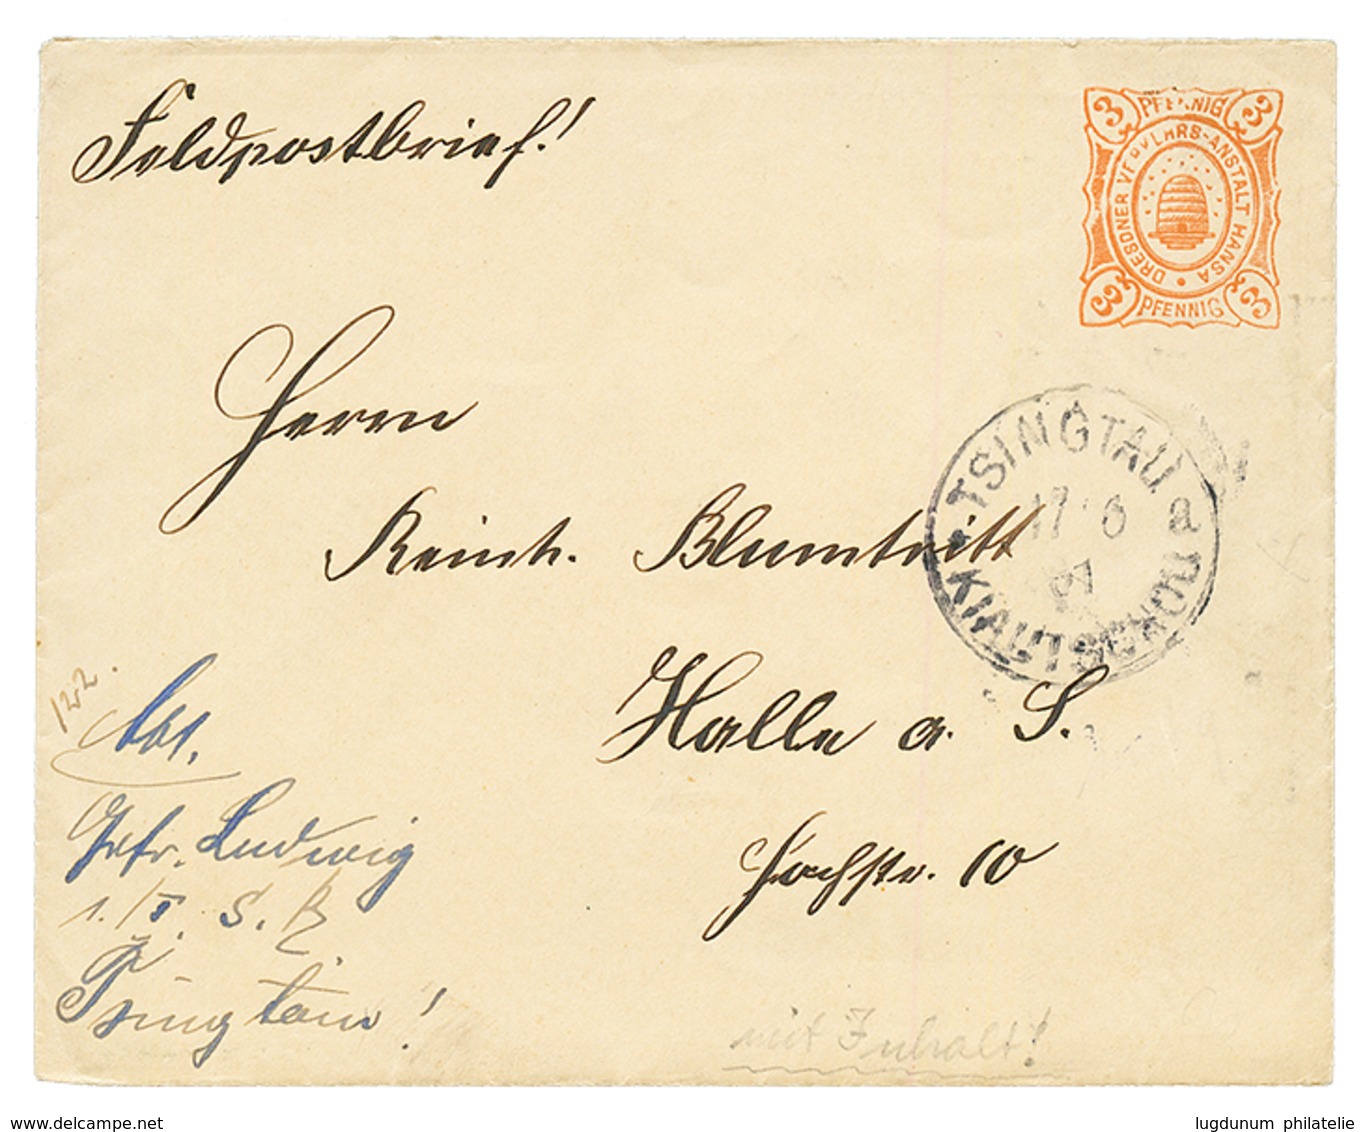 Feldpostbrief!
3 PFENNIG 3
DRESDNER VERKEHRS-ANSTALT HANSA
3 PFENNIG 3
Herrn
TSINGTAU
a
KIAUTSCHOU
Reinh. Blumtritt
Halle a. S.
122.
Abs.
Hochstr. 10
Gefr. Ludwig
1./I. S. B.
Tsingtau!
mit Inhalt!
www.delcampe.net
lugdunum philatelie